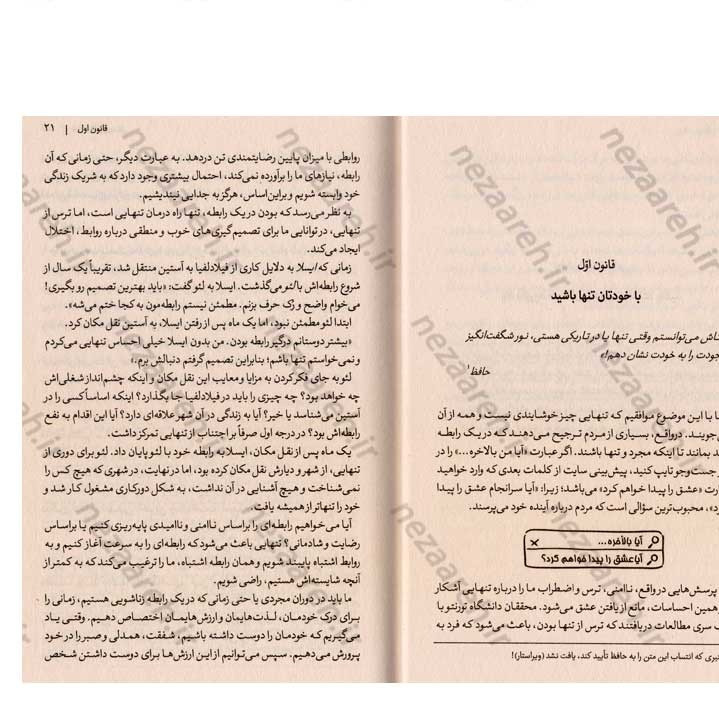 قانون اوّل
با خودتان تنها باشید
می‌توانستم وقتی تنها یا در تاریکی هستی، نور شگفت‌انگیز
را به خودت نشان دهم!»
حافظ۱
با این موضوع موافقیم که تنهایی چیز خوشایندی نیست و همه از آن
درواقع، بسیاری از مردم ترجیح می‌دهند که در یک رابطه
بمانند تا اینکه مجرد و تنها باشند. اگر عبارت «آیا من بالاخره...» را در
جست‌وجو تایپ کنید، پیش‌بینی سایت از کلمات بعدی که وارد خواهید
«عشق را پیدا خواهم کرد» می‌باشد؛ زیرا: «آیا سرانجام عشق را پیدا
محبوب‌ترین سؤالی است که مردم درباره آینده خود می‌پرسند.
آیا بالاخره...
آیا عشق را پیدا خواهم کرد؟
پرسش‌هایی در واقع، ناامنی، ترس و اضطراب ما را درباره تنهایی آشکار
همین احساسات، مانع از یافتن عشق می‌شود. محققان دانشگاه تورنتو با
سری مطالعات دریافتند که ترس از تنها بودن، باعث می‌شود که فرد به
که انتساب این متن را به حافظ تأیید کند، یافت نشد (ویراستار)!
قانون اول | ۲۱
روابطی با میزان پایین رضایتمندی تن دردهد. به عبارت دیگر، حتی زمانی که آن
رابطه، نیازهای ما را برآورده نمی‌کند، احتمال بیشتری وجود دارد که به شریک زندگی
خود وابسته شویم و براین‌اساس، هرگز به جدایی نیندیشیم.
به نظر می‌رسد که بودن در یک رابطه، تنها راه درمان تنهایی است، اما ترس از
تنهایی، در توانایی ما برای تصمیم‌گیری‌های خوب و منطقی درباره روابط، اختلال
ایجاد می‌کند.
زمانی که ایسلا به دلایل کاری از فیلادلفیا به آستین منتقل شد، تقریباً یک سال از
شروع رابطه‌اش با لئو می‌گذشت. ایسلا به لئو گفت: «باید بهترین تصمیم رو بگیری!
می‌خوام واضح و رُک حرف بزنم. مطمئن نیستم رابطه‌مون به کجا ختم می‌شه».
ابتدا لئو مطمئن نبود، اما یک ماه پس از رفتن ایسلا، به آستین نقل مکان کرد.
«بیشتر دوستانم درگیر رابطه بودن. من بدون ایسلا خیلی احساس تنهایی می‌کردم
و نمی‌خواستم تنها باشم؛ بنابراین تصمیم گرفتم دنبالش برم.»
لئو به جای فکر کردن به مزایا و معایب این نقل مکان و اینکه چشم‌انداز شغلی‌اش
چه خواهد بود؟ چه چیزی را باید در فیلادلفیا جا بگذارد؟ اینکه اساساً کسی را در
آستین می‌شناسد یا خیر؟ آیا به زندگی در آن شهر علاقه‌ای دارد؟ آیا این اقدام به نفع
رابطه‌اش بود؟ در درجه اول صرفاً بر اجتناب از تنهایی تمرکز داشت.
یک ماه پس از نقل مکان، ایسلا به رابطه خود با لئو پایان داد. لئو برای دوری از
تنهایی، از شهر و دیارش نقل مکان کرده بود، اما در نهایت، در شهری که هیچ کس را
نمی‌شناخت و هیچ آشنایی در آن نداشت، به شکل دورکاری مشغول کار شد و
خود را تنهاتر از همیشه یافت.
آیا می‌خواهیم رابطه‌ای را براساس ناامنی و ناامیدی پایه‌ریزی کنیم یا براساس
رضایت و شادمانی؟ تنهایی باعث می‌شود که رابطه‌ای را به سرعت آغاز کنیم و به
روابط اشتباه پایبند شویم و همان رابطه اشتباه، ما را ترغیب می‌کند که به کمتر از
آنچه شایسته‌اش هستیم، راضی شویم.
ما باید در دوران مجردی یا حتی زمانی که در یک رابطه زناشویی هستیم، زمانی را
برای درک خودمان، لذت‌هایمان و ارزش‌هایمان اختصاص دهیم. وقتی یاد
می‌گیریم که خودمان را دوست داشته باشیم، شفقت، همدلی و صبر را در خود
پرورش می‌دهیم. سپس می‌توانیم از این ارزش‌ها برای دوست داشتن شخص
nezaareh.ir